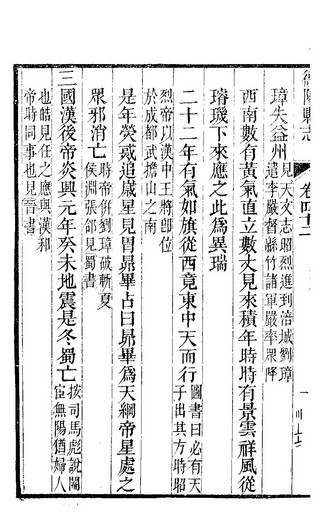 德陽縣志 卷四十二 一
璋失益州見天文志昭烈進到涪城劉璋
遣李嚴督緜竹諸軍嚴率眾降
西南數有黃氣直立數丈見來積年時時有景雲祥風從
璿璣下來應之此爲異瑞
二十二年有氣如旗從西竟東中天而行圖書曰必有天
子出其方時昭
烈帝以漢中王將卽位
於成都武擔山之南
是年熒惑追歲星見胃昴畢占曰昴畢爲天綱帝星處之
眾邪消亡時帝併劉璋破斬夏
侯淵張郃見蜀書
三國漢後帝炎興元年癸未地震是冬蜀亡按司馬彪說閹
宦無陽猶婦人
也皓見任之應與漢和
帝時同事也見晉書